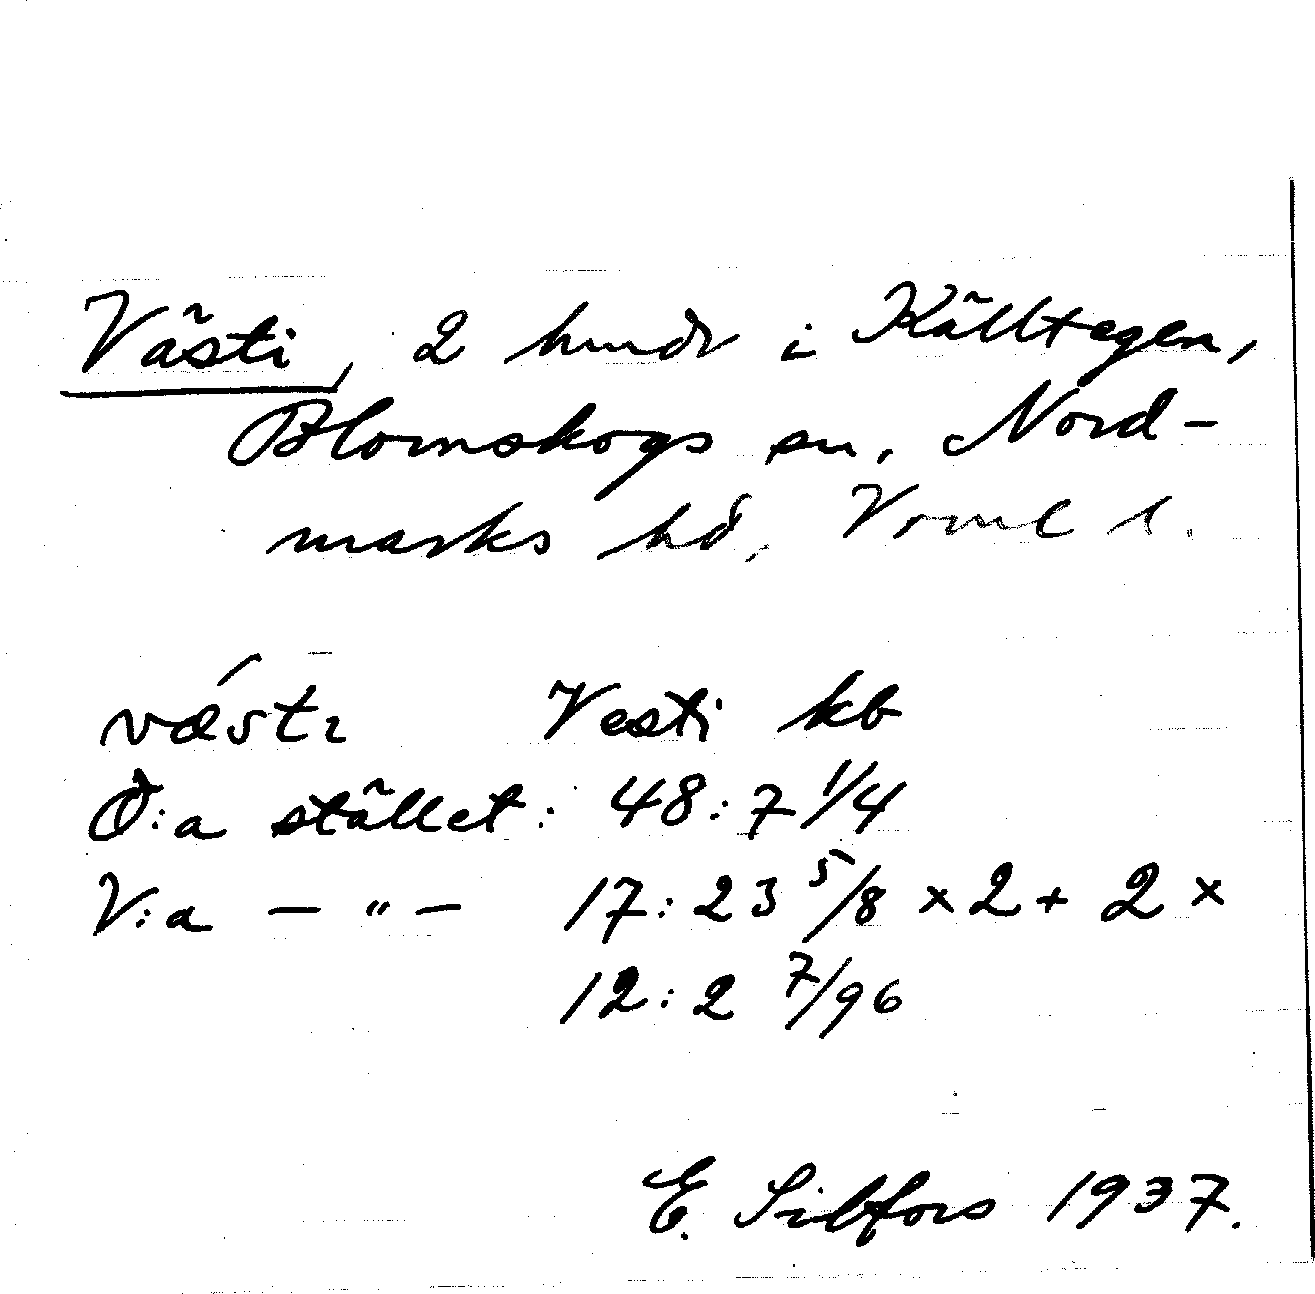 Västi, 2 hmdr i Källtegen,
Blomskogs sn, Nord-
marks hd, Vrml l.
væ´stɩ Vesti kb
Ö:a stället: 48:7 1/4
V:a — " — 17:23 5/8 × 2 + 2 ×
12:2 7/96
E. Silfors 1937.